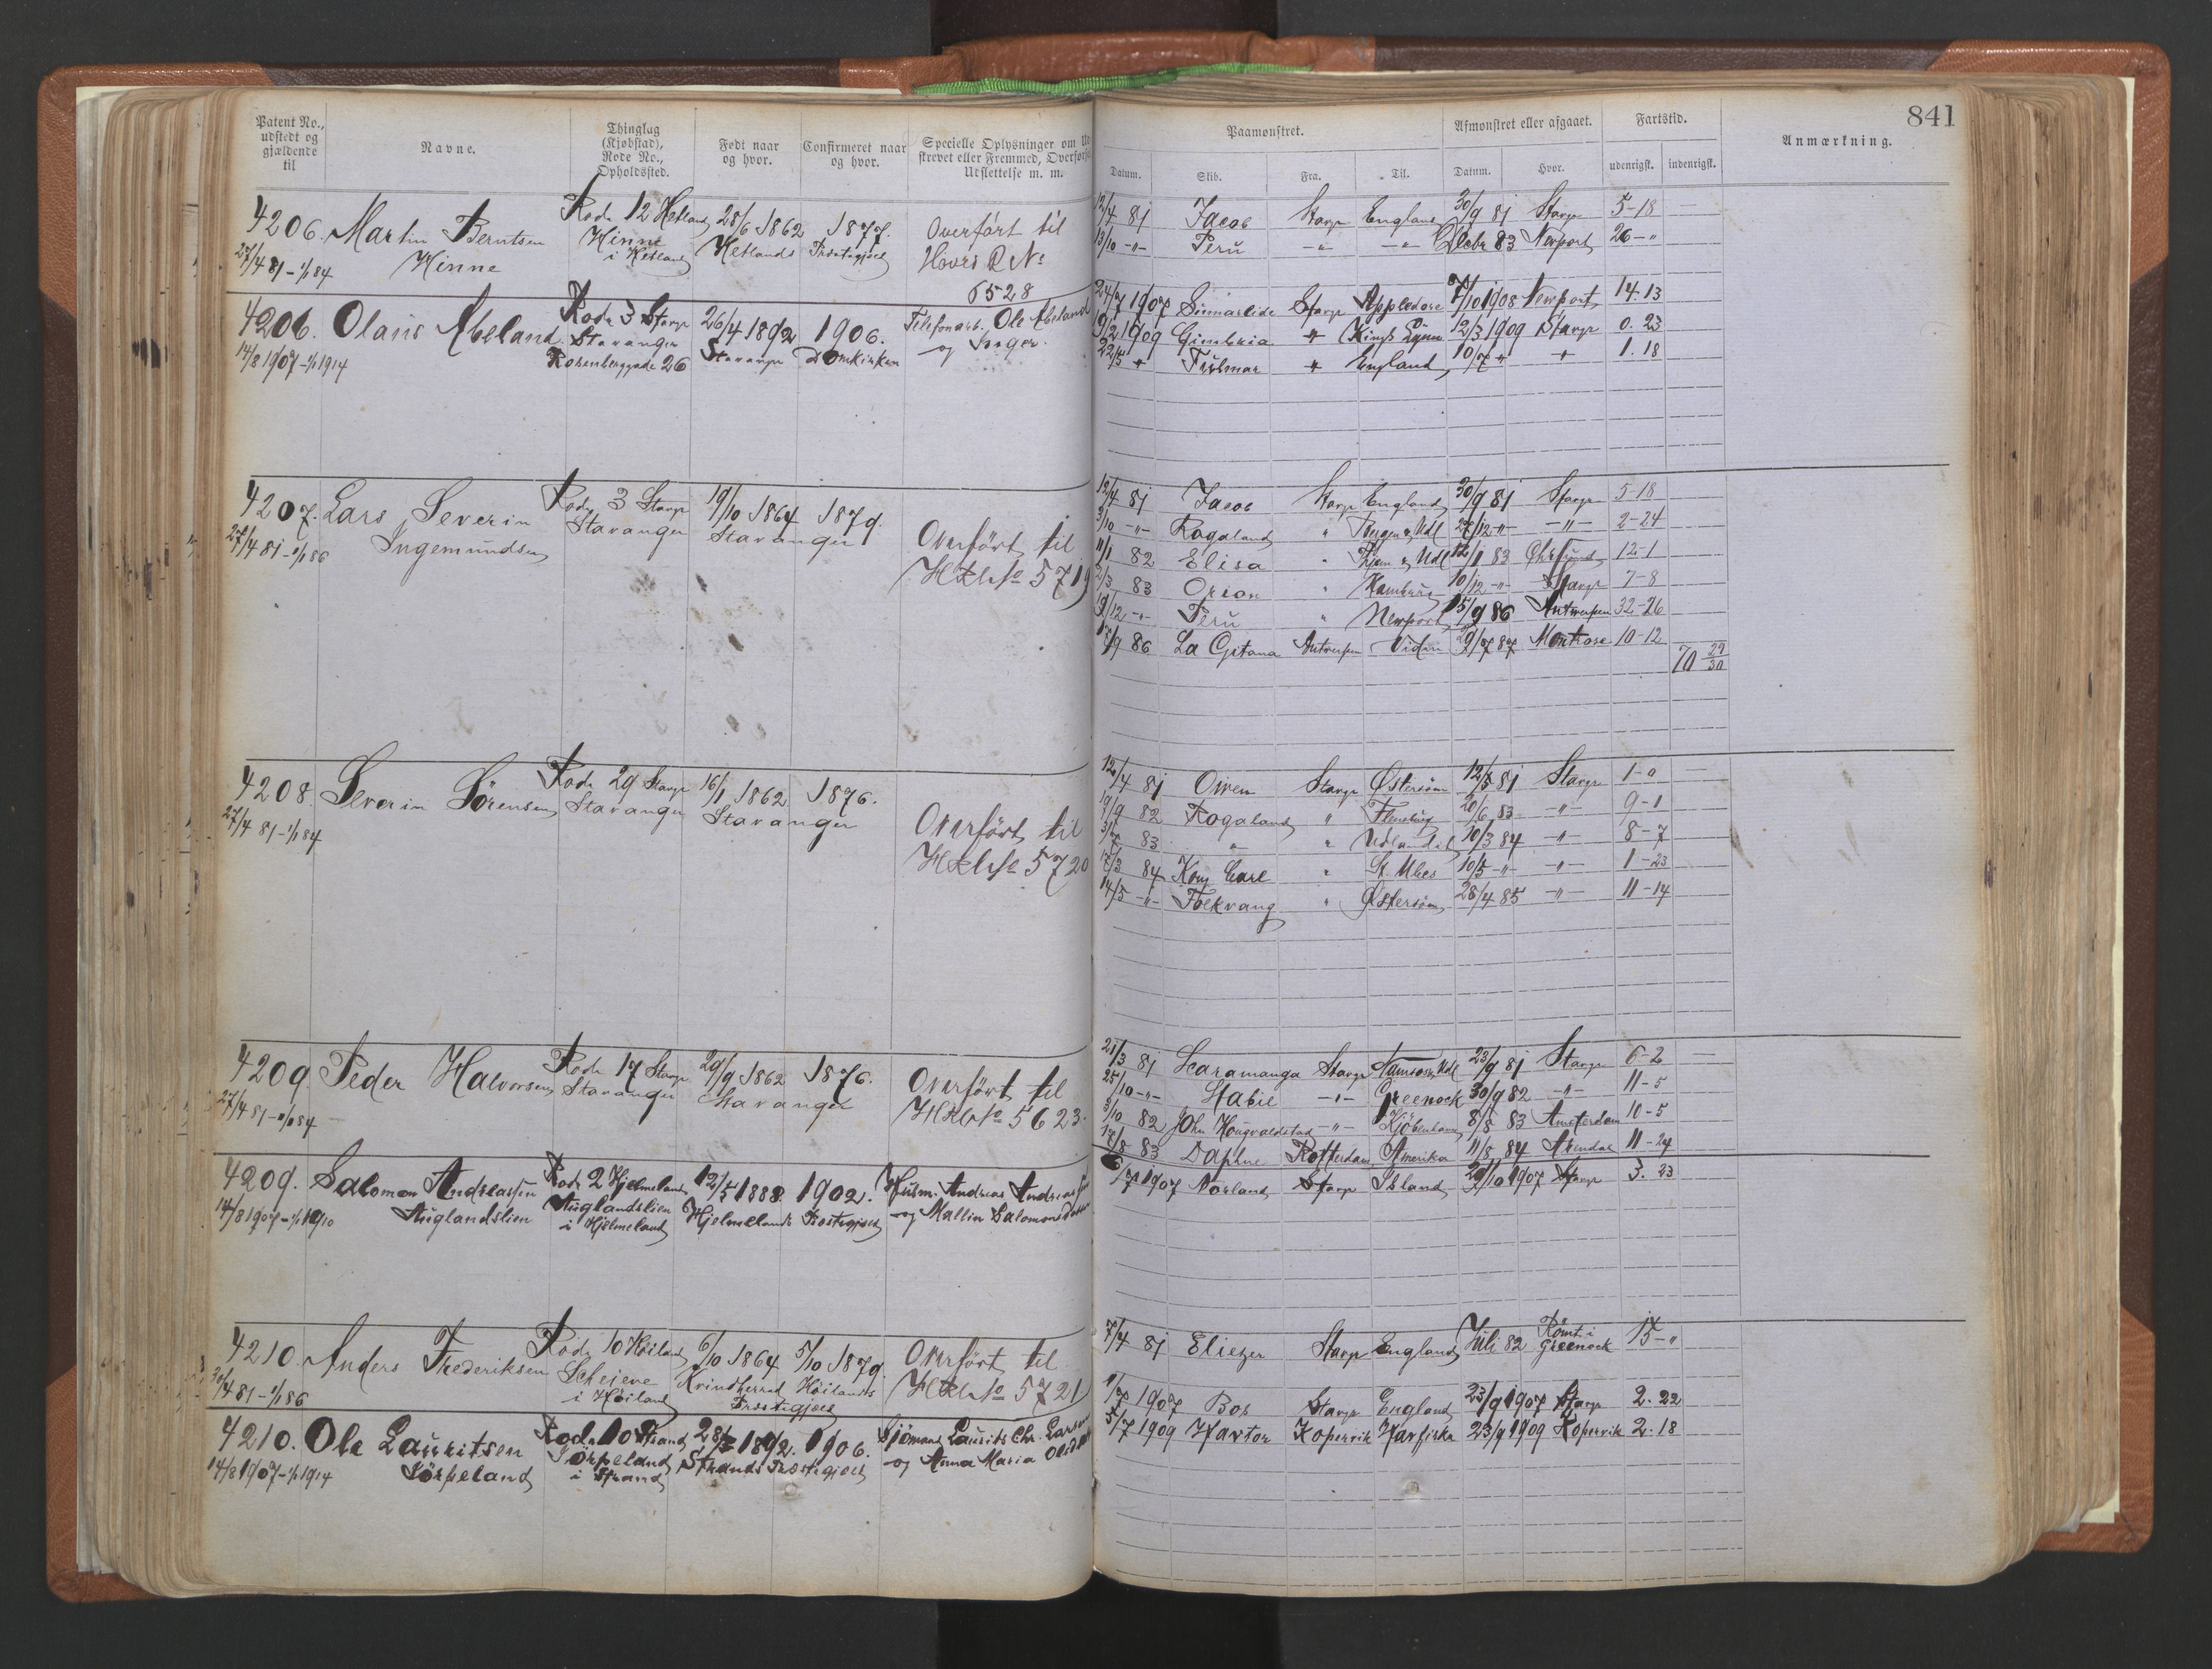 841
Patent No., udstedt og gjældende til
Navne.
Thinglag (Kjøbstad), Rode No., Opholdssted.
Født naar og hvor.
Confirmeret naar og hvor.
Specielle Oplysninger om
Udslettelse m. m.
Paamønstret.
Afmønstret eller afgaaet.
Fartstid.
Anmærkning.
Datum. Skib. Fra. Til. Datum. Hvor. udenrigsk. indenrigsk.
4206. Martin Berntsen Rode 12 Hetland 28/6 1862 1877. Overført til
27/4 81 - 1/1 84 Hinne Hinne i Hetland Hetlands Præstegjæld
6528
12/4 81 Jacob Stavgr England 30/9 81 Stavgr 5-18
13/10 -"- Peru -"- -"- Decbr 83 Newport 26-"
4206. Olaus Abeland Rode 3 Stavgr 26/4 1892 1906. Telefonarb. Ole Abeland
14/8 1907 - 1/1 1914 Stavanger Stavanger Domkirken og Inger.
Rosenberggade 26
24/7 1907 Stavgr Appledore 7/10 1908 Newport 14.13
9/2 1909 Gimbria " Kings Lynn 12/3 1909 Stavgr 0.23
22/5 " " England 10/7 " " 1.18
4207. Lars Severin Rode 3 Stavgr 19/10 1864 1879. Overført til
27/4 81 - 1/1 86 Ingemundsen Stavanger Stavanger 5719
12/4 81 Jacob Stavgr England 30/9 81 Stavgr 5-18
3/10 -"- Rogaland " Bergen & Udl 27/12 -"- -"- 2-24
11/1 82 Elisa " 12/1 83 12-1
2/3 83 Orion " Hamburg 10/12 -"- Stavgr 7-8
19/12 -"- Peru " Newport 15/9 86 Antwerpen 32-26
17/9 86 La Gitana Antwerpen 29/7 87 Montrose 10-12
70 29/30
4208. Severin Sörensen Rode 29 Stavgr 16/1 1862 1876. Overført til
27/4 81 - 1/1 84 Stavanger Stavanger 5720
12/4 81 Owen Stavgr Østersøen 12/5 81 Stavgr 1-0
19/9 82 Rogaland " Flensburg 20/6 83 -"- 9-1
3/7 83 " " Udlandet 10/3 84 -"- 8-7
17/3 84 Kong Carl " St. Ubes 10/5 -"- -"- 1-23
14/5 -"- Folkvang " Østersøen 28/4 85 -"- 11-14
4209. Peder Halvorsen Rode 17 Stavgr 29/9 1862 1876. Overført til
27/4 81 - 1/1 84 Stavanger Stavanger 5623.
21/3 81 Scaramanga Stavgr Namsos, Udl 23/9 81 Stavgr 6-2
25/10 -"- Habil -"- Greenock 30/9 82 -"- 11-5
3/10 82 John Hougvaldstad -"- Kjöbenhavn 8/8 83 Amsterdam 10-5
17/8 83 Daphne Rotterdam Amerika 11/8 84 Arendal 11-24
4209. Salomon Andreassen Rode 2 Hjelmeland 12/5 1888 1902. Husm. Andreas Andreassen
14/8 1907 - 1/1 1910 Auglandslien Auglandslien i Hjelmeland Hjelmelands Præstegjæld og Mallin Salomonsdatter
6/7 1907 Norland Stavgr Island 29/10 1907 Stavgr 3.23
4210. Anders Frederiksen Rode 10 Höiland 6/10 1864 5/10 1879. Overført til
30/4 81 - 1/1 86 Scheieve i Höiland Kvindherred Höilands Præstegjæld 5721
7/4 81 Eliezer Stavgr England Juli 82 Römt i Greenock 15-"
4210. Ole Lauritsen Rode 10 Strand 28/3 1892. 1906. Sjömand Laurits Chr. Larsen
14/8 1907 - 1/1 1914 Jörpeland Jörpeland i Strand Strands Præstegjæld og Anna Maria
1/7 1907 Bob Stavgr England 23/9 1907 Stavgr 2.22
5/7 1909 Havtor Kopervik Havfiske 23/9 1909 Kopervik 2.18